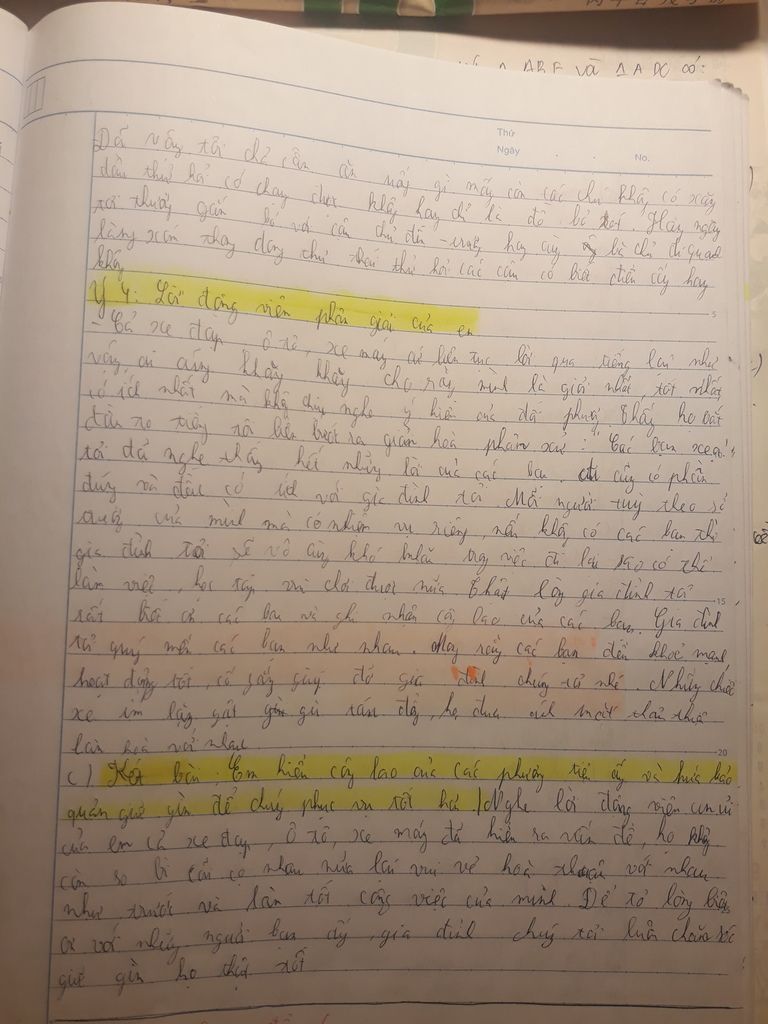 và ΔADC có:
Thứ
Ngày
No.
Dấu vậy tôi chỉ cần gì mấy còn các chú không có xăng
dầu thử hỏi có chạy được không hay chỉ là đồ bỏ. Hàng ngày
tôi thường gắn bó với cậu chủ đến trường hay cùng bà chủ đi quanh
làng xóm
không
5
Ý 4: Lời động viên phân giải của em
- Cả xe đạp, ô tô, xe máy cứ liên tục lời qua tiếng lại như
vậy, ai cũng khăng khăng cho rằng mình là giỏi nhất, tốt nhất
có ích nhất, mà không chịu nghe ý kiến của đối phương. Thấy họ bắt
đầu to tiếng tôi liền bước ra giảng hoà phân xử: "Các bạn xe ơi!
tôi đã nghe thấy hết những lời của các bạn. ai cũng có phần
đúng và đều có ích với gia đình tôi. Mỗi người tuỳ theo sở
trường của mình mà có nhiệm vụ riêng, nếu không có các bạn thì
gia đình tôi sẽ vô cùng khó khăn trong việc đi lại sao có thể
làm việc, học tập, vui chơi được nữa. Thật lòng gia đình tôi
15
rất biết ơn các bạn và ghi nhận công lao của các bạn. Gia đình
tôi quý mến các bạn như nhau. Mong rằng các bạn đều khoẻ mạnh
hoạt động tốt, cố gắng giúp đỡ gia đình chúng tôi nhé. Những chiếc
xe im lặng gật gù, họ đưa mắt thân thiện
làm hoà với nhau
20
c) Kết bài. Em hiểu công lao của các phương tiện ấy và hứa bảo
quản giữ gìn để chúng phục vụ tốt hơn / Nghe lời động viên an ủi
của em cả xe đạp, ô tô, xe máy đã hiểu ra vấn đề, họ không
còn so bì cãi cọ nhau nữa lại vui vẻ hoà thuận với nhau
như trước và làm tốt công việc của mình. Để tỏ lòng biết
ơn với những người bạn ấy, gia đình chúng tôi luôn chăm sóc
giữ gìn họ thật tốt